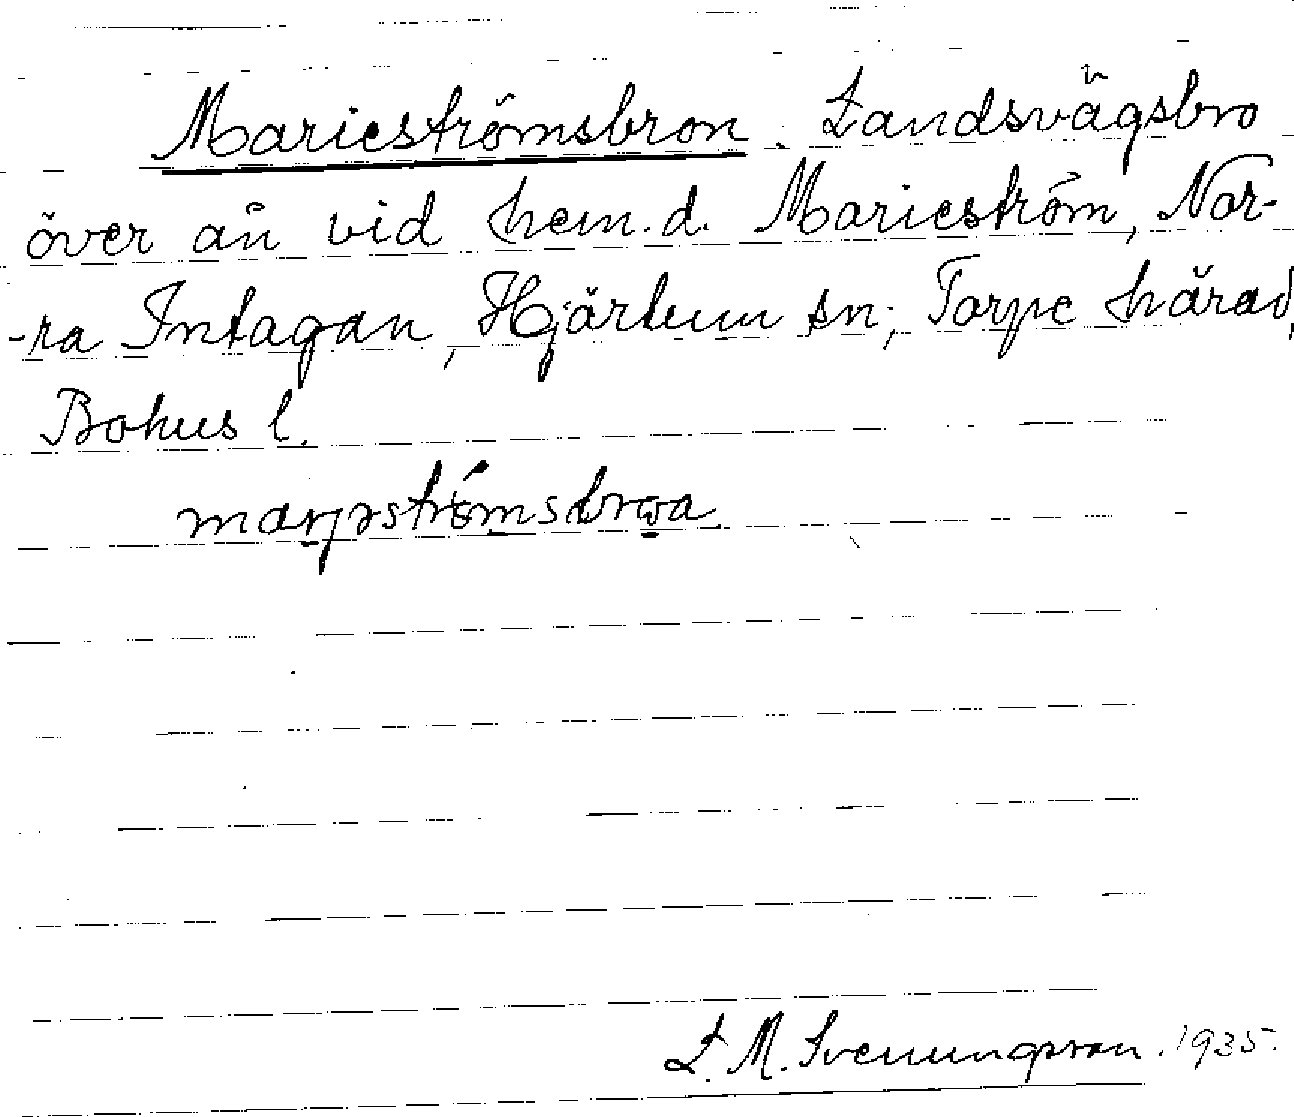 Marieströmsbron. Landsvägsbro
över ån vid hem.d. Marieström, Nor-
-ra Intagan, Hjärtum sn; Torpe härad,
Bohus l.
L. M. Svenungsson. 1935.